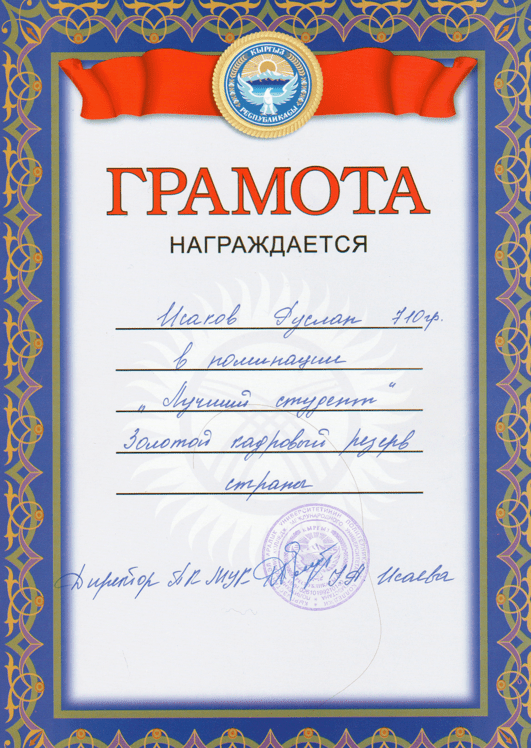 КЫРГЫЗ
РЕСПУБЛИКАСЫ
ГРАМОТА
НАГРАЖДАЕТСЯ
Исаков Руслан 710гр.
в номинации
"Лучший студент"
Золотой кадровый резерв
страны
Директор ПК МУК Исаева